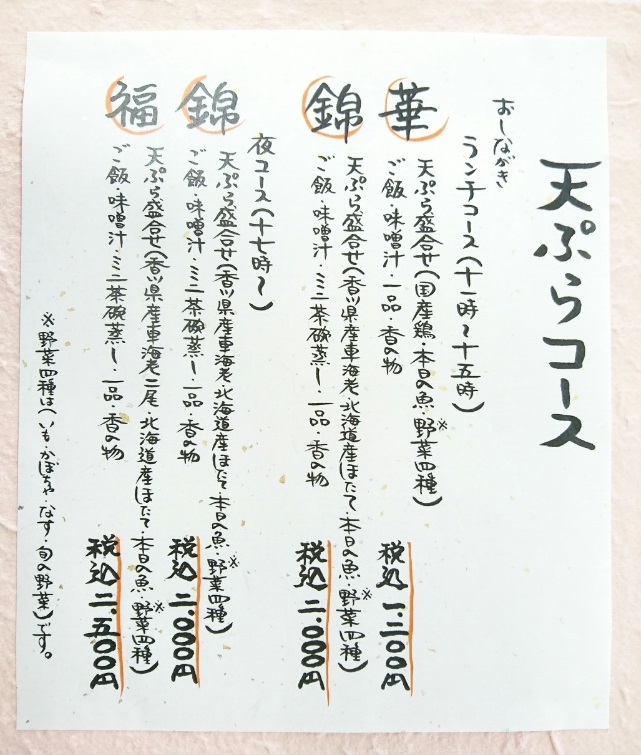 天ぷらコース
おしながき
ランチコース(十一時〜十五時)
華
天ぷら盛合せ(国産鶏・本日の魚・野菜四種※)
ご飯・味噌汁・一品・香の物
税込 一、三〇〇円
錦
天ぷら盛合せ(香川県産車海老・北海道産ほたて・本日の魚・野菜四種※)
ご飯・味噌汁・ミニ茶碗蒸し・一品・香の物
税込 二、〇〇〇円
夜コース(十七時〜)
錦
天ぷら盛合せ(香川県産車海老・北海道産ほたて・本日の魚・野菜四種※)
ご飯・味噌汁・ミニ茶碗蒸し・一品・香の物
税込 二、〇〇〇円
福
天ぷら盛合せ(香川県産車海老二尾・北海道産ほたて・本日の魚・野菜四種※)
ご飯・味噌汁・ミニ茶碗蒸し・一品・香の物
税込 二、五〇〇円
※野菜四種は(いも・かぼちゃ・なす・旬の野菜)です。